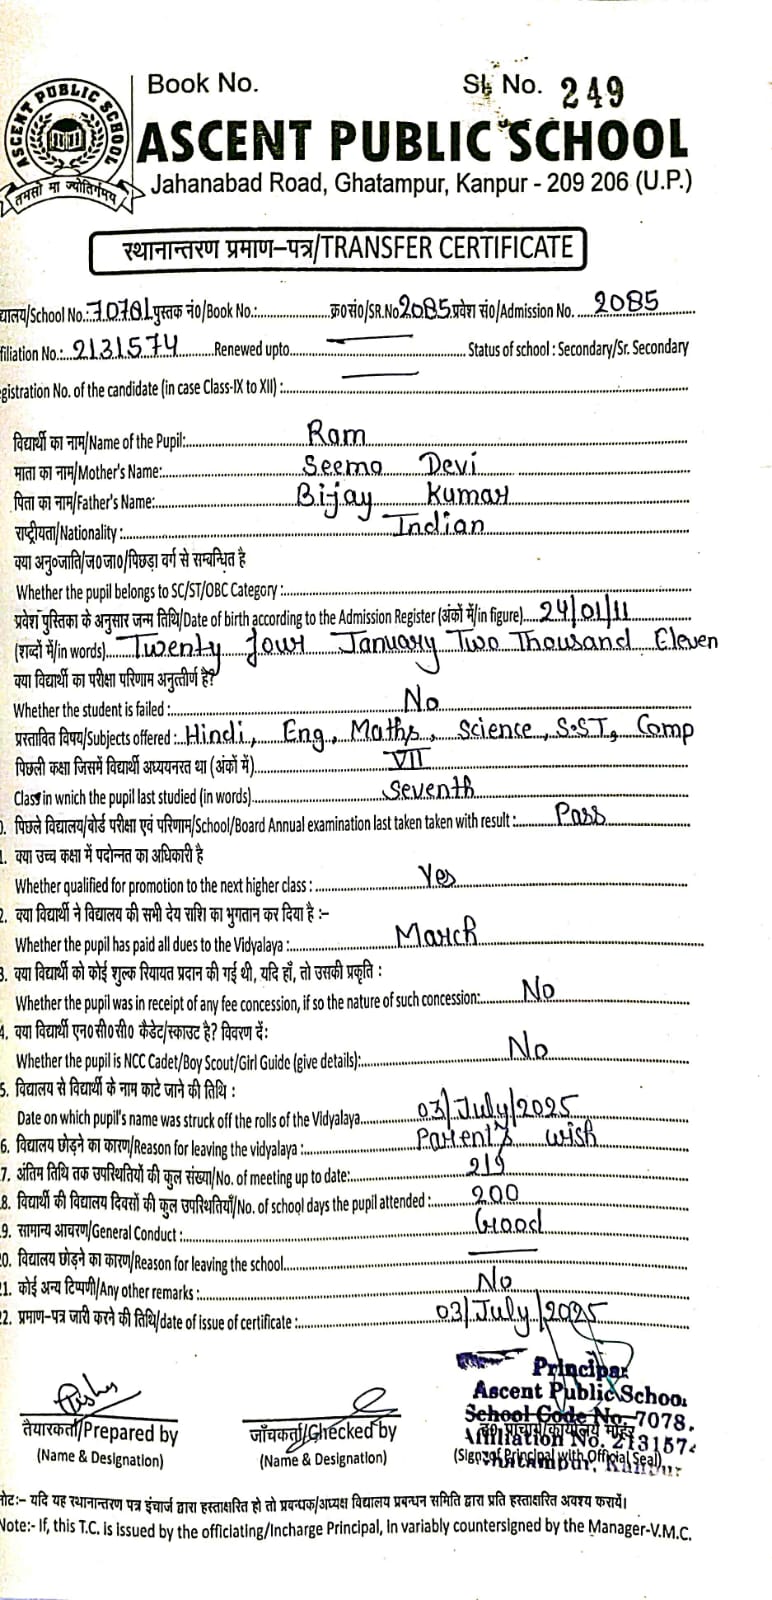 Book No. Sl. No. 249
ASCENT PUBLIC SCHOOL
तमसो मा ज्योतिर्गमय
ASCENT PUBLIC SCHOOL
Jahanabad Road, Ghatampur, Kanpur - 209 206 (U.P.)
स्थानान्तरण प्रमाण-पत्र/TRANSFER CERTIFICATE
द्यालय/School No.: 70781 पुस्तक नं०/Book No.: क्र०सं०/SR.No 2085 प्रवेश सं०/Admission No. 2085
filiation No.: 2131574 Renewed upto — Status of school : Secondary/Sr. Secondary
gistration No. of the candidate (in case Class-IX to XII) : —
विद्यार्थी का नाम/Name of the Pupil: Ram
माता का नाम/Mother's Name: Seema Devi
पिता का नाम/Father's Name: Bijay Kumar
राष्ट्रीयता/Nationality : Indian
क्या अनु०जाति/ज०जा०/पिछड़ा वर्ग से सम्बन्धित है
Whether the pupil belongs to SC/ST/OBC Category :
प्रवेश पुस्तिका के अनुसार जन्म तिथि/Date of birth according to the Admission Register (अंकों में/in figure) 24/01/11
(शब्दों में/in words) Twenty four January Two Thousand Eleven
क्या विद्यार्थी का परीक्षा परिणाम अनुत्तीर्ण है?
Whether the student is failed : No
प्रस्तावित विषय/Subjects offered : Hindi, Eng., Maths, Science, S.ST, Comp
पिछली कक्षा जिसमें विद्यार्थी अध्ययनरत था (अंकों में) VII
Class in wnich the pupil last studied (in words) Seventh
0. पिछले विद्यालय/बोर्ड परीक्षा एवं परिणाम/School/Board Annual examination last taken taken with result : Pass
1. क्या उच्च कक्षा में पदोन्नत का अधिकारी है
Whether qualified for promotion to the next higher class : Yes
2. क्या विद्यार्थी ने विद्यालय की सभी देय राशि का भुगतान कर दिया है :-
Whether the pupil has paid all dues to the Vidyalaya : March
3. क्या विद्यार्थी को कोई शुल्क रियायत प्रदान की गई थी, यदि हाँ, तो उसकी प्रकृति :
Whether the pupil was in receipt of any fee concession, if so the nature of such concession: No
4. क्या विद्यार्थी एन०सी०सी० कैडेट/स्काउट है? विवरण दें:
Whether the pupil is NCC Cadet/Boy Scout/Girl Guide (give details): No
5. विद्यालय से विद्यार्थी के नाम काटे जाने की तिथि :
Date on which pupil's name was struck off the rolls of the Vidyalaya 03/July/2025
6. विद्यालय छोड़ने का कारण/Reason for leaving the vidyalaya : Parent's wish
7. अंतिम तिथि तक उपस्थितियों की कुल संख्या/No. of meeting up to date: 219
8. विद्यार्थी की विद्यालय दिवसों की कुल उपस्थितियाँ/No. of school days the pupil attended : 200
9. सामान्य आचरण/General Conduct : Good
20. विद्यालय छोड़ने का कारण/Reason for leaving the school —
21. कोई अन्य टिप्पणी/Any other remarks : No
22. प्रमाण-पत्र जारी करने की तिथि/date of issue of certificate : 03/July/2025
Principal
Ascent Public School
School Code No-7078
Affiliation No. 2131574
Ghatampur, Kanpur
तैयारकर्ता/Prepared by जाँचकर्ता/Checked by
(Name & Designation) (Name & Designation) (Sign of Principal with Official Seal)
नोट:- यदि यह स्थानान्तरण पत्र इंचार्ज द्वारा हस्ताक्षरित हो तो प्रबन्धक/अध्यक्ष विद्यालय प्रबन्धन समिति द्वारा प्रति हस्ताक्षरित अवश्य करायें।
Note:- If, this T.C. is issued by the officiating/Incharge Principal, in variably countersigned by the Manager-V.M.C.